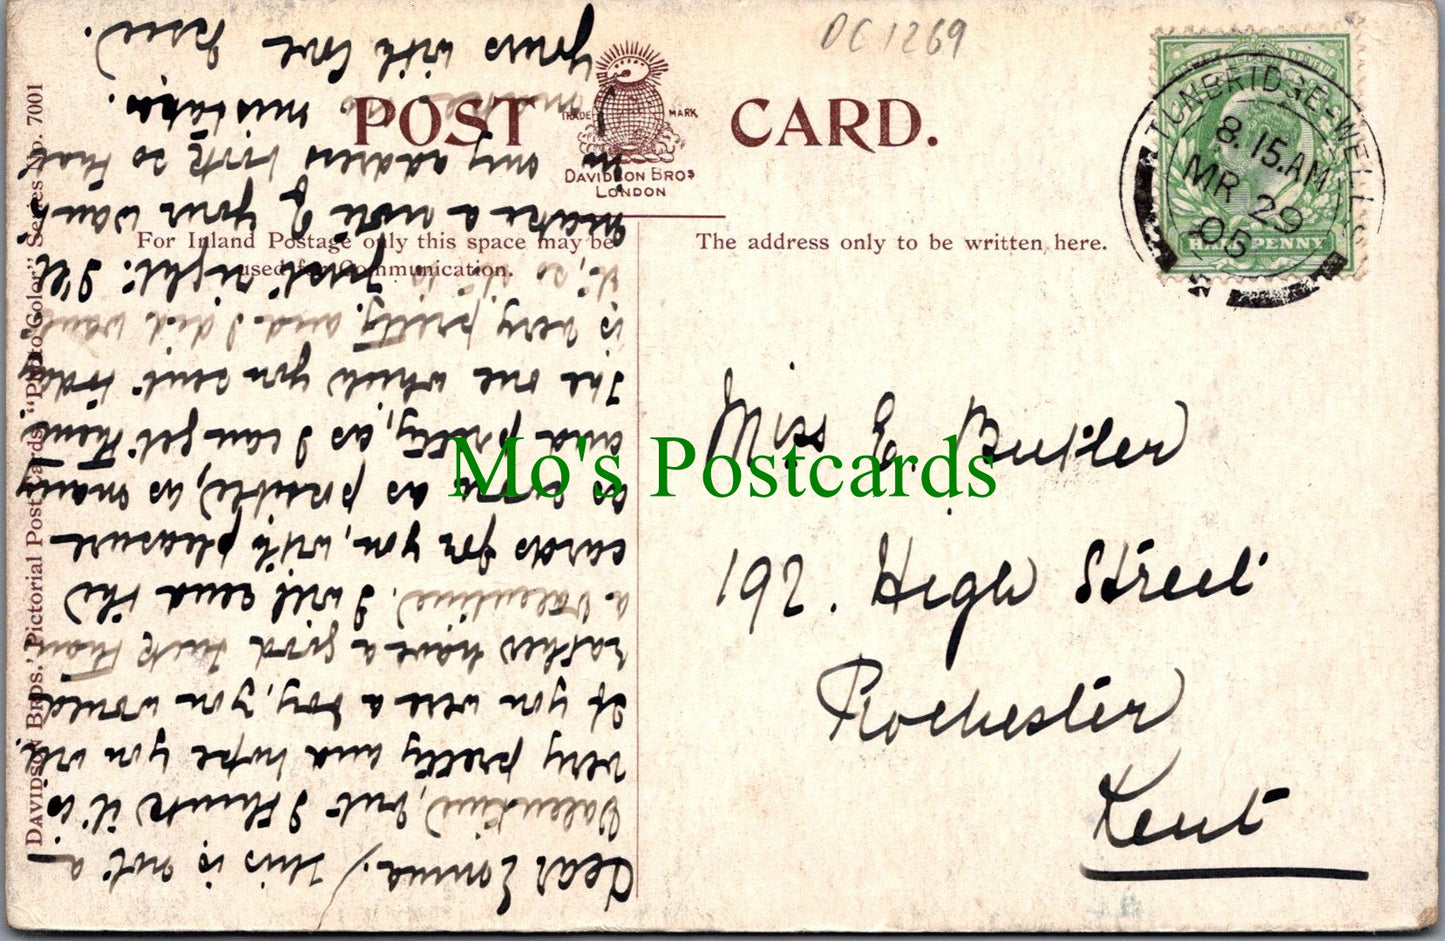 DC1269
POST CARD.
TRADE MARK
DAVIDSON BROS
LONDON
For Inland Postage only this space may be
used for Communication.
The address only to be written here.
TUNBRIDGE-WELLS
8.15.AM
MR 29
05
HALFPENNY
Miss E. Butler
192. High Street
Rochester
Kent
Mo's Postcards
DAVIDSON BROS.' Pictorial Post Cards. "Photo-Color" Series No. 7001
Dear Emma, This is not a
Valentine, but I think it is
very pretty and hope you will.
If you were a boy, you would
rather have a good tuck than
a Valentine. I will send the
cards for you, with pleasure
as soon as possible, as many
and pretty, as I can get them
The one which you sent today
is very pretty, and I did want
it, so it's just right. I'll
make a note of your want
in my address book so that
makes no mistakes.
Yours with love